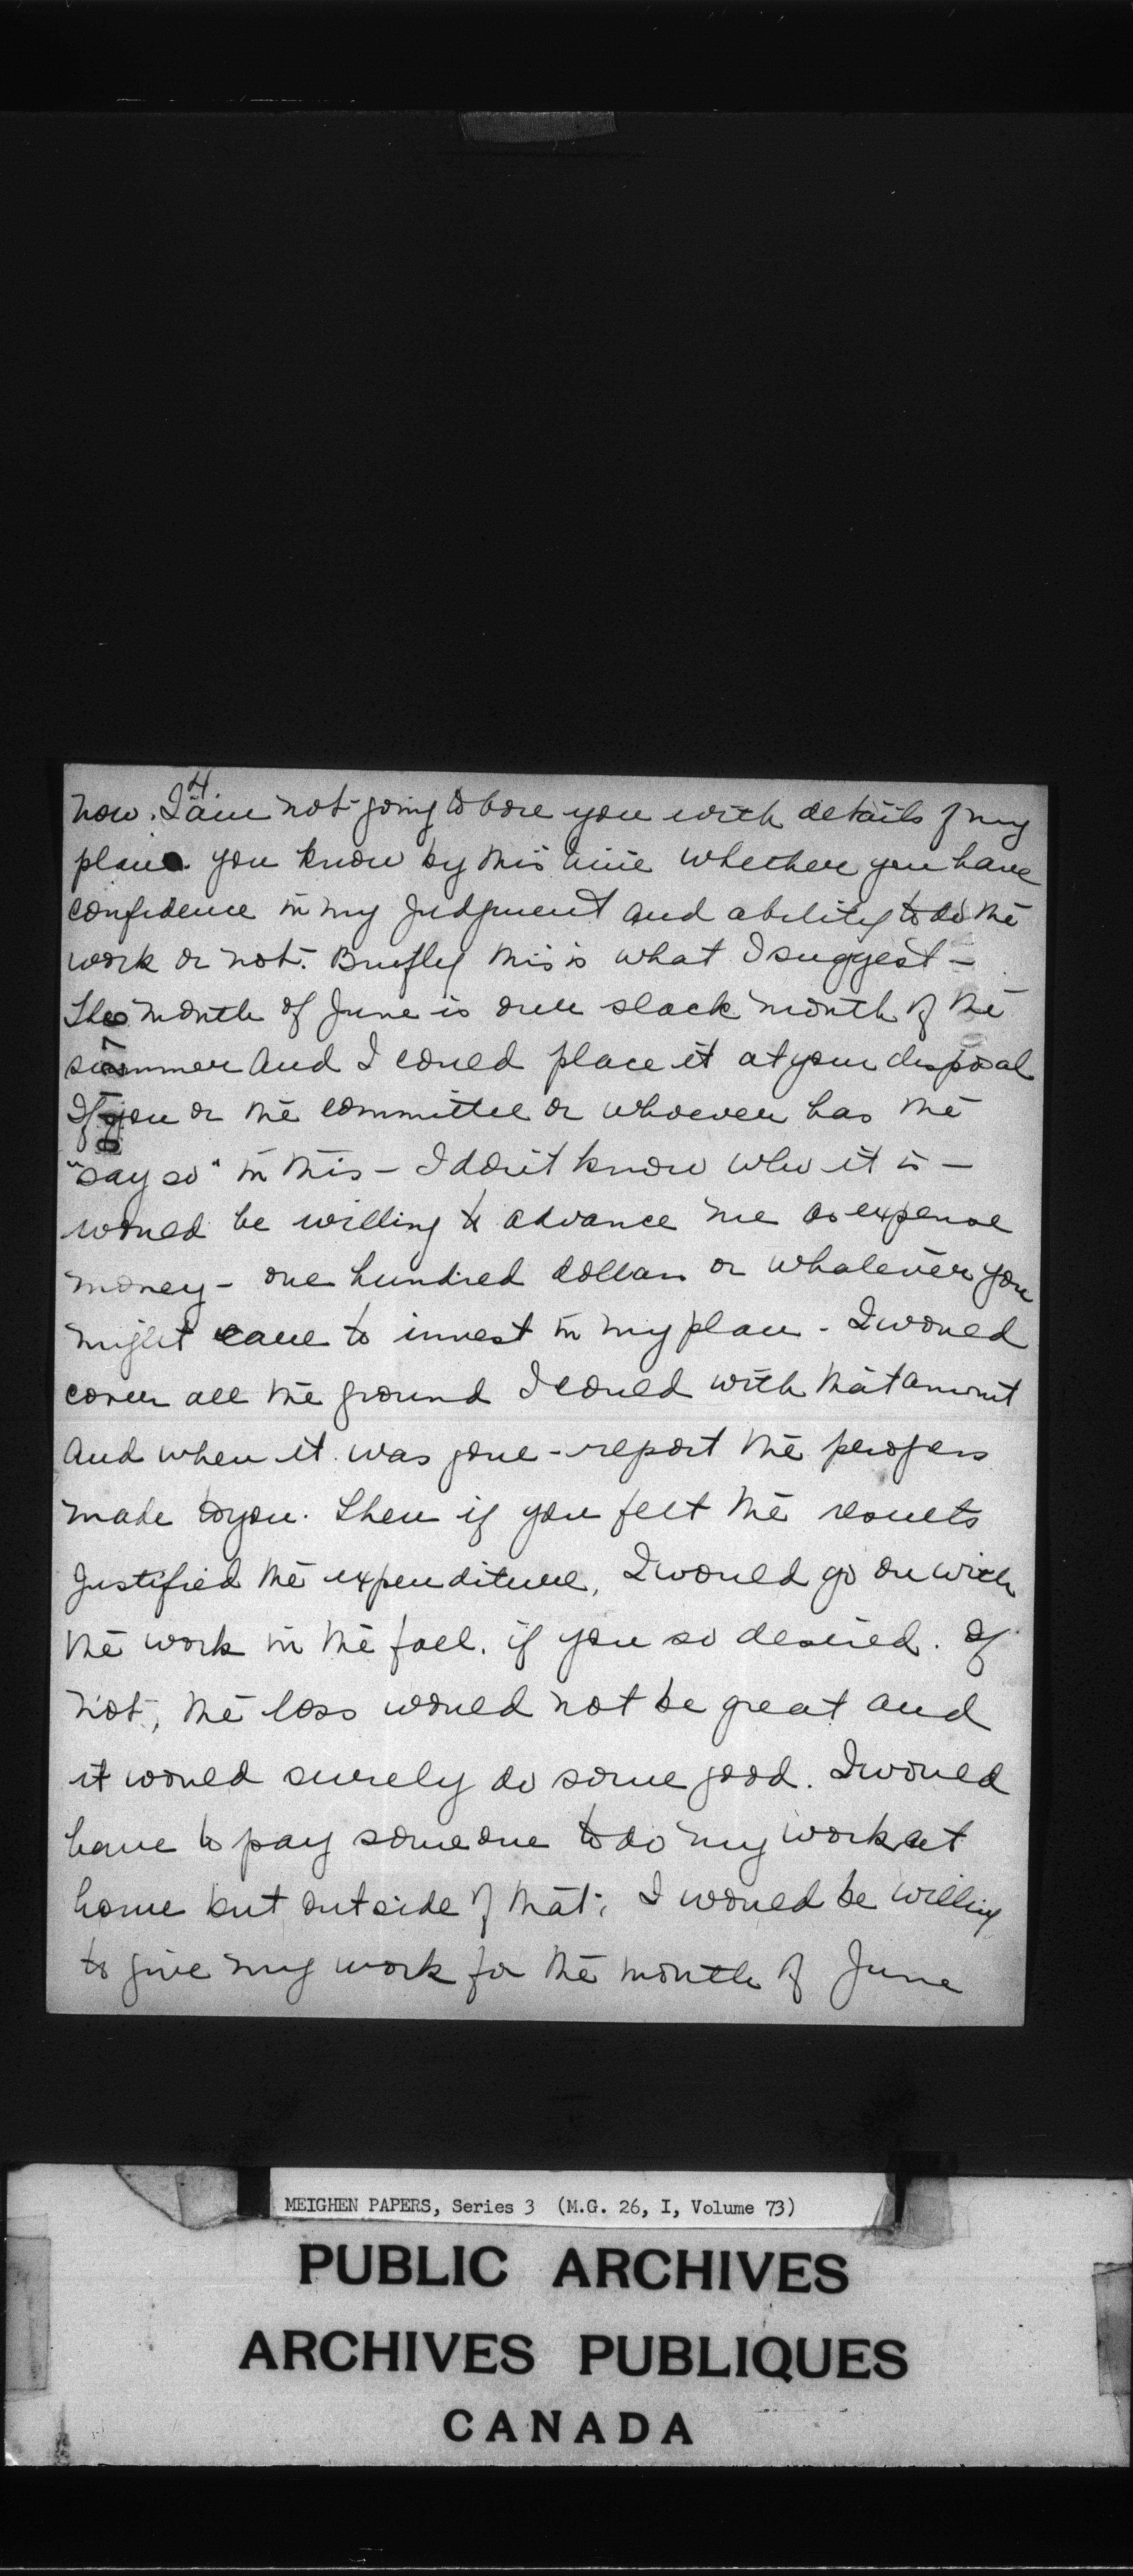 4
now. I am not going to bore you with details of my
plans. you know by this time whether you have
confidence in my judgment and ability to do the
work or not. Briefly this is what I suggest -
The month of June is our slack month of the
summer and I could place it at your disposal
If you or the committee or whoever has the
"say so" in this - I don't know who it is -
would be willing to advance me as expense
money - one hundred dollars or whatever you
might care to invest in my plan - I would
cover all the ground I could with that amount
and when it was gone - report the progress
made to you. Then if you felt the results
justified the expenditure, I would go on with
the work in the fall, if you so desired. If
not, the loss would not be great and
it would surely do some good. I would
have to pay someone to do my work at
home but outside of that, I would be willing
to give my work for the month of June
MEIGHEN PAPERS, Series 3 (M.G. 26, I, Volume 73)
PUBLIC ARCHIVES
ARCHIVES PUBLIQUES
CANADA